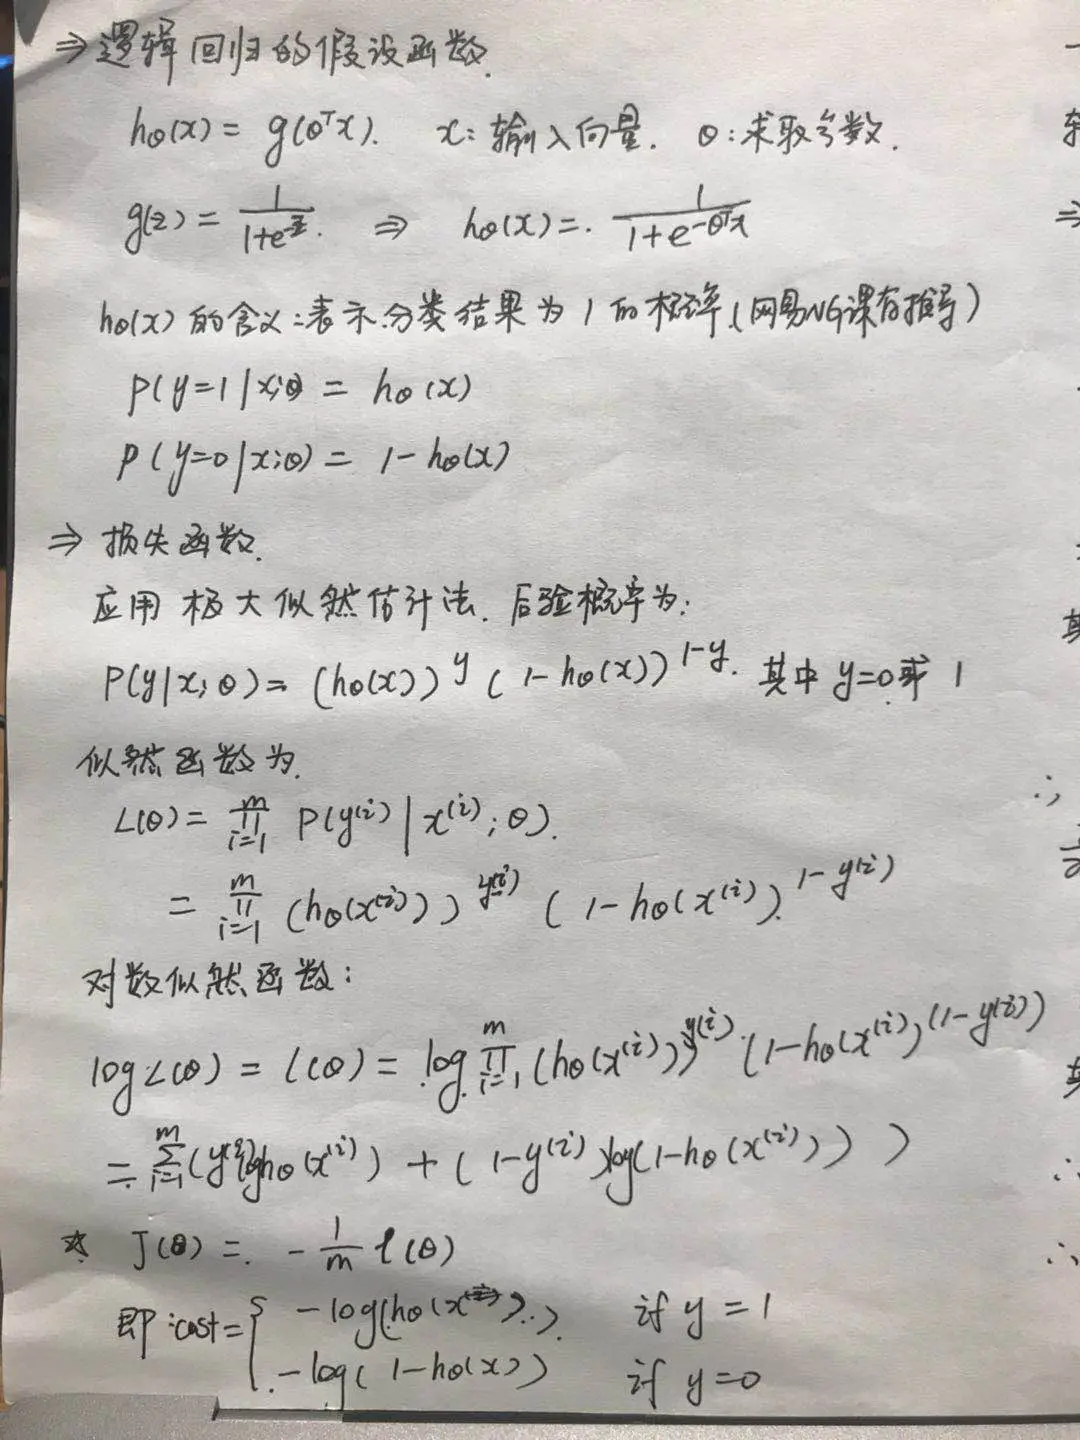 ⇒ 逻辑回归的假设函数.
hθ(x) = g(θᵀx). x: 输入向量. θ: 求取参数.
g(z) = 1/(1+e^z). ⇒ hθ(x) = 1/(1+e^(-θᵀx))
hθ(x) 的含义: 表示分类结果为 1 的概率 (网易NG课有推导)
P(y=1|x;θ) = hθ(x)
P(y=0|x;θ) = 1-hθ(x)
⇒ 损失函数.
应用极大似然估计法. 后验概率为:
P(y|x;θ) = (hθ(x))^y (1-hθ(x))^(1-y). 其中 y=0 或 1
似然函数为.
L(θ) = ∏_{i=1}^{m} P(y^(i)|x^(i);θ).
= ∏_{i=1}^{m} (hθ(x^(i)))^(y^(i)) (1-hθ(x^(i)).^(1-y^(i))
对数似然函数:
log L(θ) = l(θ) = log ∏_{i=1}^{m} (hθ(x^(i)))^(y^(i)) (1-hθ(x^(i))^(1-y^(i))
= ∑_{i=1}^{m} (y^(i) log hθ(x^(i)) + (1-y^(i)) log(1-hθ(x^(i))) )
☆ J(θ) = -1/m l(θ)
即: cost = { -log(hθ(x)) if y = 1
-log(1-hθ(x)) if y=0